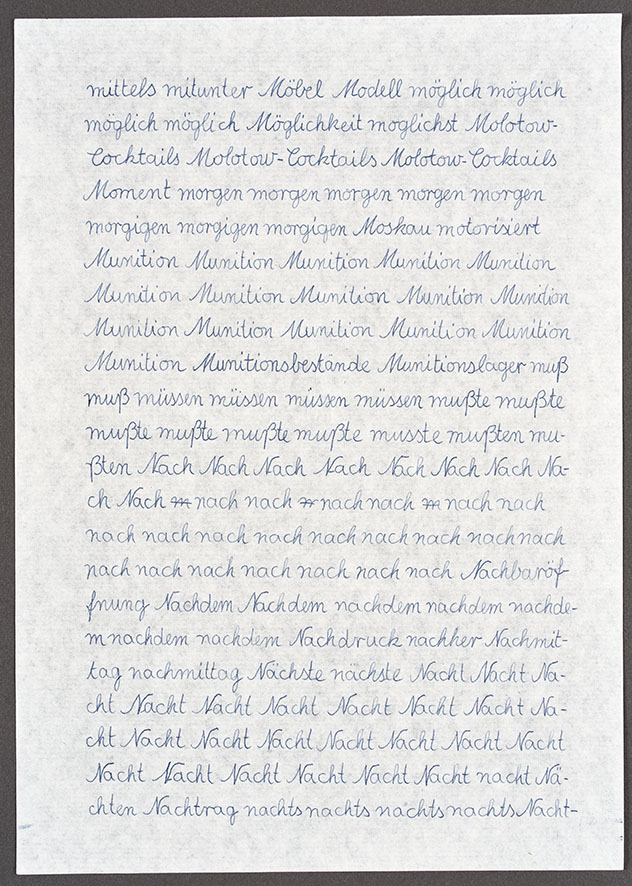 mittels mitunter Möbel Modell möglich möglich
möglich möglich Möglichkeit moglichst Molotow-
Cocktails Molotow-Cocktails Molotow-Cocktails
Moment morgen morgen morgen morgen morgen
morgigen morgigen morgigen Moskau motorisiert
Munition Munition Munition Munition Munition
Munition Munition Munition Munition Munition
Munition Munition Munition Munition Munition
Munition Munitionsbestände Munitionslager muß
muß müssen müssen müssen müssen mußte mußte
mußte mußte mußte mußte musste mußten mu-
ßten Nach Nach Nach Nach Nach Nach Nach Na-
ch Nach m nach nach n nach nach m nach nach
nach nach nach nach nach nach nach nach nach
nach nach nach nach nach nach nach Nachbaröf-
fnung Nachdem Nachdem nachdem nachdem nachde-
m nachdem nachdem Nachdruck nachher Nachmit-
tag nachmittag Nächste nächste Nacht Nacht Na-
cht Nacht Nacht Nacht Nacht Nacht Nacht Na-
cht Nacht Nacht Nacht Nacht Nacht Nacht Nacht
Nacht Nacht Nacht Nacht Nacht Nacht nacht Nä-
chten Nachtrag nachts nachts nachts nachts Nacht-